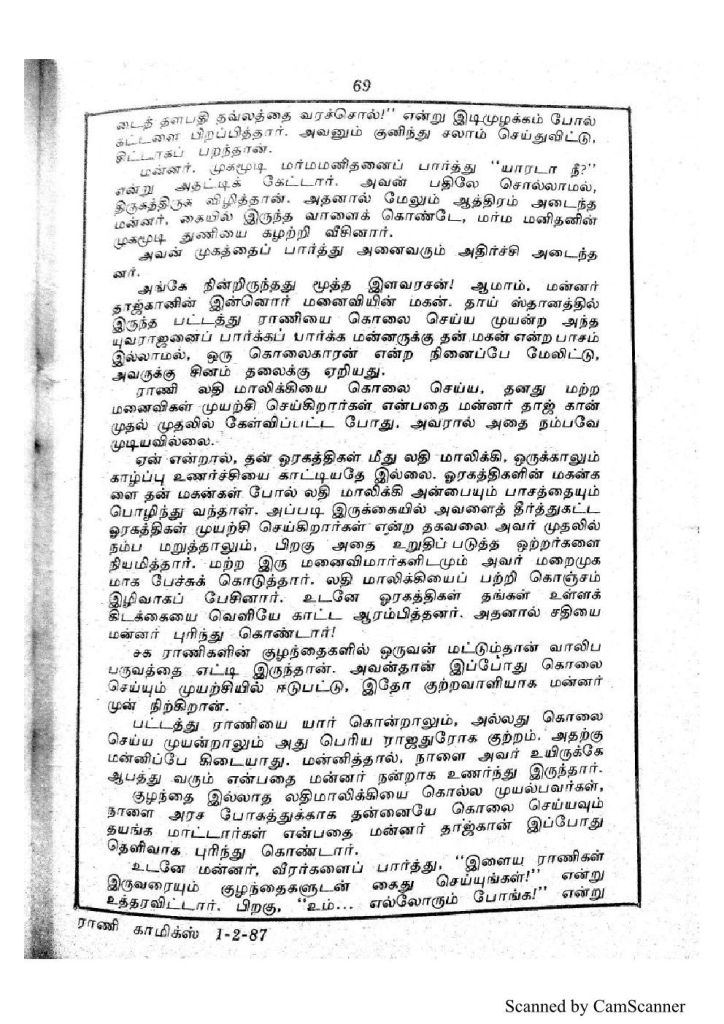 69
டைத் தளபதி தவ்லத்தை வரச்சொல்!" என்று இடிமுழக்கம் போல்
கட்டளை பிறப்பித்தார். அவனும் குனிந்து சலாம் செய்துவிட்டு,
சிட்டாகப் பறந்தான்.
மன்னர், முகமூடி மர்மமனிதனைப் பார்த்து "யாரடா நீ?"
என்று அதட்டிக் கேட்டார். அவன் பதிலே சொல்லாமல்,
திருகத்திருக விழித்தான். அதனால் மேலும் ஆத்திரம் அடைந்த
மன்னர், கையில் இருந்த வாளைக் கொண்டே, மர்ம மனிதனின்
முகமூடி துணியை கழற்றி வீசினார்.
அவன் முகத்தைப் பார்த்து அனைவரும் அதிர்ச்சி அடைந்த
னர்.
அங்கே நின்றிருந்தது மூத்த இளவரசன்! ஆமாம், மன்னர்
தாஜ்கானின் இன்னொர் மனைவியின் மகன். தாய் ஸ்தானத்தில்
இருந்த பட்டத்து ராணியை கொலை செய்ய முயன்ற அந்த
யுவராஜனைப் பார்க்கப் பார்க்க மன்னருக்கு தன் மகன் என்ற பாசம்
இல்லாமல், ஒரு கொலைகாரன் என்ற நினைப்பே மேலிட்டு,
அவருக்கு சினம் தலைக்கு ஏறியது.
ராணி லதி மாலிக்கியை கொலை செய்ய, தனது மற்ற
மனைவிகள் முயற்சி செய்கிறார்கள் என்பதை மன்னர் தாஜ் கான்
முதல் முதலில் கேள்விப்பட்ட போது, அவரால் அதை நம்பவே
முடியவில்லை.
ஏன் என்றால், தன் ஓரகத்திகள் மீது லதி மாலிக்கி, ஒருக்காலும்
காழ்ப்பு உணர்ச்சியை காட்டியதே இல்லை. ஓரகத்திகளின் மகன்க
ளை தன் மகன்கள் போல் லதி மாலிக்கி அன்பையும் பாசத்தையும்
பொழிந்து வந்தாள். அப்படி இருக்கையில் அவளைத் தீர்த்துகட்ட
ஓரகத்திகள் முயற்சி செய்கிறார்கள் என்ற தகவலை அவர் முதலில்
நம்ப மறுத்தாலும், பிறகு அதை உறுதிப் படுத்த ஒற்றர்களை
நியமித்தார். மற்ற இரு மனைவிமார்களிடமும் அவர் மறைமுக
மாக பேச்சுக் கொடுத்தார். லதி மாலிக்கியைப் பற்றி கொஞ்சம்
இழிவாகப் பேசினார். உடனே ஓரகத்திகள் தங்கள் உள்ளக்
கிடக்கையை வெளியே காட்ட ஆரம்பித்தனர். அதனால் சதியை
மன்னர் புரிந்து கொண்டார்!
சக ராணிகளின் குழந்தைகளில் ஒருவன் மட்டும்தான் வாலிப
பருவத்தை எட்டி இருந்தான். அவன்தான் இப்போது கொலை
செய்யும் முயற்சியில் ஈடுபட்டு, இதோ குற்றவாளியாக மன்னர்
முன் நிற்கிறான்.
பட்டத்து ராணியை யார் கொன்றாலும், அல்லது கொலை
செய்ய முயன்றாலும் அது பெரிய ராஜதுரோக குற்றம். அதற்கு
மன்னிப்பே கிடையாது. மன்னித்தால், நாளை அவர் உயிருக்கே
ஆபத்து வரும் என்பதை மன்னர் நன்றாக உணர்ந்து இருந்தார்.
குழந்தை இல்லாத லதிமாலிக்கியை கொல்ல முயல்பவர்கள்,
நாளை அரச போகத்துக்காக தன்னையே கொலை செய்யவும்
தயங்க மாட்டார்கள் என்பதை மன்னர் தாஜ்கான் இப்போது
தெளிவாக புரிந்து கொண்டார்.
உடனே மன்னர், வீரர்களைப் பார்த்து, "இளைய ராணிகள்
இருவரையும் குழந்தைகளுடன் கைது செய்யுங்கள்!" என்று
உத்தரவிட்டார். பிறகு, "உம்... எல்லோரும் போங்க!" என்று
ராணி காமிக்ஸ் 1-2-87
Scanned by CamScanner